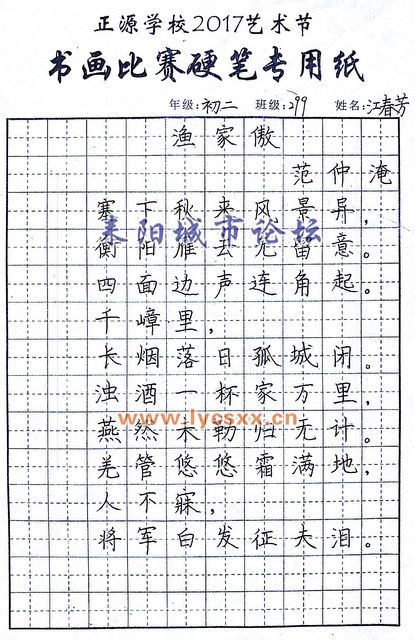 正源学校2017艺术节
书画比赛硬笔专用纸
年级:初二 班级:299 姓名:江春芳
渔家傲
范仲淹
塞下秋来风景异,
耒阳城市论坛
衡阳雁去无留意。
四面边声连角起。
千嶂里,
长烟落日孤城闭。
浊酒一杯家万里,
www.lycsxx.cn
燕然未勒归无计。
羌管悠悠霜满地,
人不寐,
将军白发征夫泪。